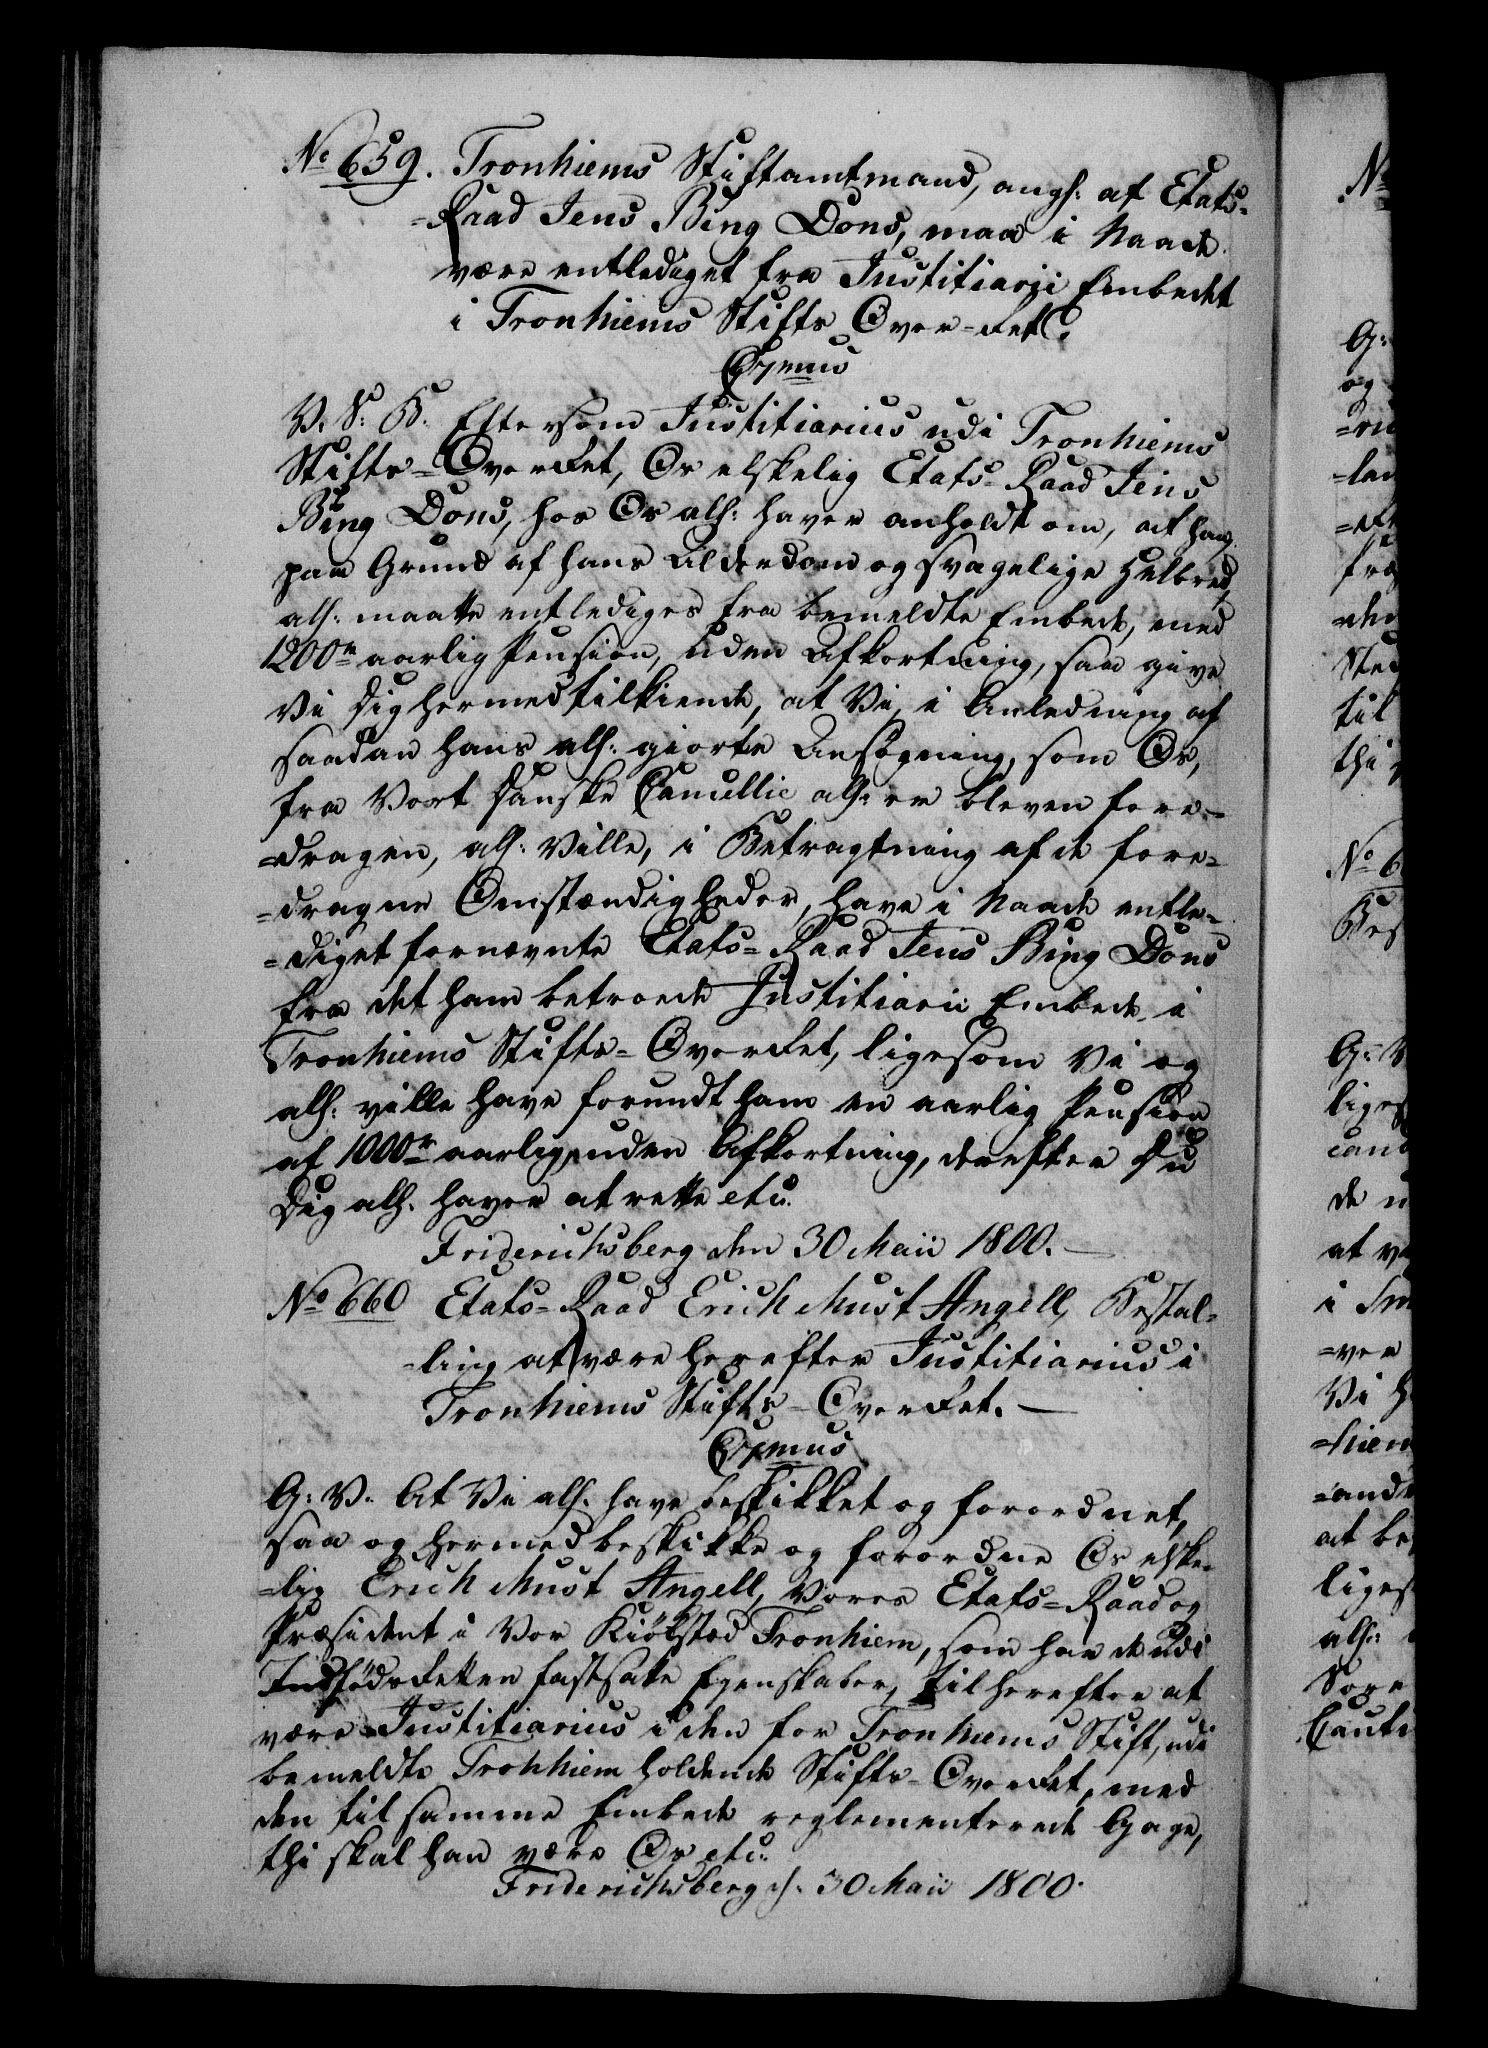 No 659. Tronhiems Stiftamtmand, angh: af Etats-
=Raad Jens Bing Dons, maa i Naade
være entlediget fra Justitiarii Embedet
i Tronhiems Stifts Over-Ret.
C7mus
V. S: B. Eftersom Justitiarius udi Tronhiems
Stifts-OverRet, Os elskelig Etats-Raad Jens
Bing Dons, hos Os alh: haver anholdt om, at han
paa Grund af hans Alderdom og svagelige Helbred,
alh: maatte entlediges fra bemeldte Embede, med
1200 aarlig Pension, uden Afkortning, saa give
Vi Dig hermed tilkiende, at Vi, i Anledning af
saadan hans alh: giorte Ansøgning, som Os,
fra Vort Danske Cancellie alh: er bleven fore-
=dragen, alh: Ville, i Betragtning af de fore-
=dragne Omstændigheder, have i Naade entle-
=diget fornævnte Etats=Raad Jens Bing Dons
fra det ham betroede Justitiarii Embede i
Tronhiems Stifts=OverRet, ligesom Vi og
alh: ville have forundt ham en aarlig Pension
af 1000 aarlig, uden Afkortning, derefter Du
Dig alh: haver at rette etc.
Friderichsberg den 30 Maii 1800.
No 660 Etats=Raad Erich Must Angell, Bestal-
=ling at være herefter Justitiarius i
Tronhiems Stifts-OverRet.
C7mus
G: V. At Vi alh: have beskikket og forordnet,
saa og hermed beskikke og forordne Os elske-
=lig Erich Must Angell, Vores Etats=Raad og
Præsident i Vor Kiøbstæd Tronhiem, som har de udi
IndfødsRetten fastsatte Egenskaber, til herefter at
være Justitiarius i den for Tronhiems Stift, udi
bemeldte Tronhiem holdende Stifts-OverRet, med
den til samme Embede reglementerede Gage,
thi skal han være Os etc.
Friderichsberg d: 30 Maii 1800.